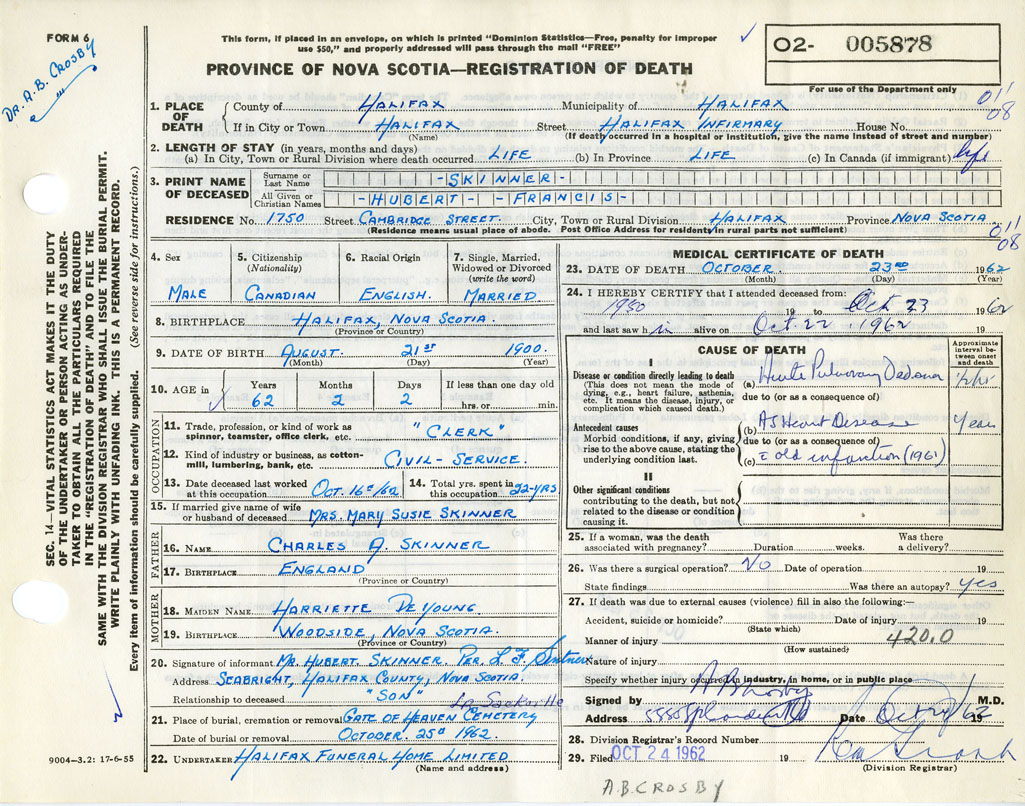 FORM 6
DR. A. B. CROSBY
This form, if placed in an envelope, on which is printed "Dominion Statistics—Free, penalty for improper
use $50," and properly addressed will pass through the mail "FREE"
PROVINCE OF NOVA SCOTIA—REGISTRATION OF DEATH
02- 005878
For use of the Department only
01'
08
1. PLACE OF DEATH County of HALIFAX Municipality of HALIFAX
If in City or Town HALIFAX Street HALIFAX INFIRMARY House No.
(Name) (If death occurred in a hospital or institution, give the name instead of street and number)
2. LENGTH OF STAY (in years, months and days)
(a) In City, Town or Rural Division where death occurred LIFE (b) In Province LIFE (c) In Canada (if immigrant) life
3. PRINT NAME OF DECEASED Surname or Last Name -SKINNER-
All Given or Christian Names -HUBERT- -FRANCIS-
RESIDENCE No. 1750 Street CAMBRIDGE STREET. City, Town or Rural Division HALIFAX Province NOVA SCOTIA
(Residence means usual place of abode. Post Office Address for residents in rural parts not sufficient)
01'
08
4. Sex MALE
5. Citizenship (Nationality) CANADIAN
6. Racial Origin ENGLISH.
7. Single, Married, Widowed or Divorced (write the word) MARRIED
8. BIRTHPLACE HALIFAX, NOVA SCOTIA.
(Province or Country)
9. DATE OF BIRTH AUGUST. 21ST 1900.
(Month) (Day) (Year)
10. AGE in Years 62 Months 2 Days 2 If less than one day old hrs. or min.
OCCUPATION
11. Trade, profession, or kind of work as spinner, teamster, office clerk, etc. "CLERK"
12. Kind of industry or business, as cotton-mill, lumbering, bank, etc. CIVIL-SERVICE.
13. Date deceased last worked at this occupation OCT. 16th/62
14. Total yrs. spent in this occupation 22-YRS
15. If married give name of wife or husband of deceased MRS. MARY SUSIE SKINNER
FATHER
16. NAME CHARLES A. SKINNER
17. BIRTHPLACE ENGLAND
(Province or Country)
MOTHER
18. MAIDEN NAME HARRIETTE DEYOUNG
19. BIRTHPLACE WOODSIDE, NOVA SCOTIA.
(Province or Country)
20. Signature of informant MR. HUBERT SKINNER. PER. L. F.
Address SEABRIGHT, HALIFAX COUNTY, NOVA SCOTIA.
Relationship to deceased "SON"
Lr Sackville
21. Place of burial, cremation or removal GATE OF HEAVEN CEMETERY
Date of burial or removal OCTOBER. 25th 1962.
22. UNDERTAKER HALIFAX FUNERAL HOME LIMITED
(Name and address)
MEDICAL CERTIFICATE OF DEATH
23. DATE OF DEATH OCTOBER. 23RD 1962
(Month) (Day) (Year)
24. I HEREBY CERTIFY that I attended deceased from:
1950 19 to Oct 23 1962
and last saw him alive on Oct. 22, 1962 19
CAUSE OF DEATH
Approximate interval between onset and death
I
Disease or condition directly leading to death
(This does not mean the mode of dying, e.g., heart failure, asthenia, etc. It means the disease, injury, or complication which caused death.)
(a) Acute Pulmonary Oedema 1/2 hr
due to (or as a consequence of)
Antecedent causes
Morbid conditions, if any, giving rise to the above cause, stating the underlying condition last.
(b) AS Heart Disease Years
due to (or as a consequence of)
(c) c̄ old infarction (1961)
II
Other significant conditions
contributing to the death, but not related to the disease or condition causing it.
25. If a woman, was the death associated with pregnancy? Duration weeks. Was there a delivery?
26. Was there a surgical operation? NO Date of operation 19
State findings Was there an autopsy? yes
27. If death was due to external causes (violence) fill in also the following:—
Accident, suicide or homicide? Date of injury 19
(State which)
Manner of injury 420.0
(How sustained)
Nature of injury
Specify whether injury occurred in industry, in home, or in public place
Signed by A B Crosby M.D.
Address Date Oct 24/62 19
28. Division Registrar's Record Number
29. Filed OCT 24 1962 19
(Division Registrar)
A.B. CROSBY
SEC. 14—VITAL STATISTICS ACT MAKES IT THE DUTY
OF THE UNDERTAKER OR PERSON ACTING AS UNDER-
TAKER TO OBTAIN ALL THE PARTICULARS REQUIRED
IN THE "REGISTRATION OF DEATH" AND TO FILE THE
SAME WITH THE DIVISION REGISTRAR WHO SHALL ISSUE THE BURIAL PERMIT.
WRITE PLAINLY WITH UNFADING INK. THIS IS A PERMANENT RECORD.
Every item of information should be carefully supplied. (See reverse side for instructions.)
9004—3.2: 17-6-55